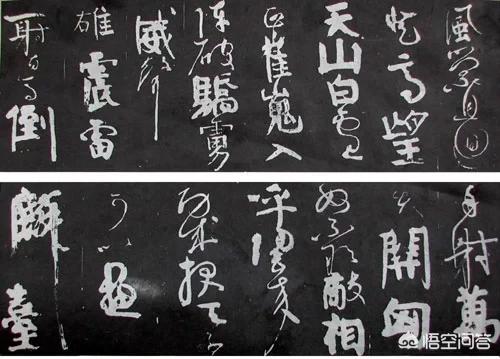 風縈且迴
登高望
天山白雲
正崔嵬入
陣破驕虜
威聲
雄震雷
射百馬倒
再射萬
夫開匈
奴不敢敵相
呼歸去來
功成報天子
可以畫
麟臺
悟空问答